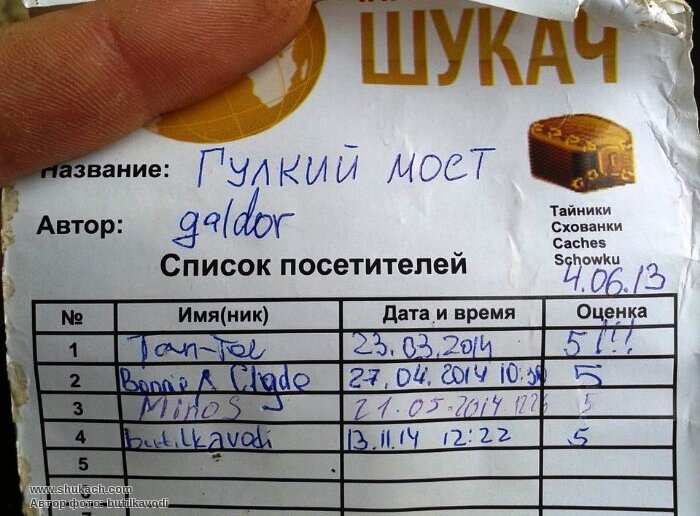 ШУКАЧ
Название: Гулкий мост
Автор: galdor
Тайники
Схованки
Caches
Schowku
4.06.13
Список посетителей
№ Имя(ник) Дата и время Оценка
1 Tan-Tol 23.03.2014 5!!!
2 Bonnie & Clyde 27.04.2014 10:30 5
3 Minos 21.05.2014 5
4 butilkavodi 13.11.14 12:22 5
5
6
7
www.shukach.com
Автор фото: butilkavodi